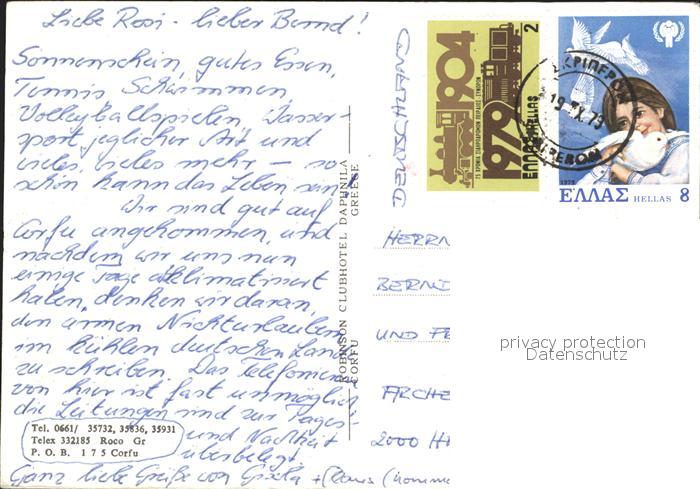 Liebe Rosi - lieber Bernd!
Sonnenschein, gutes Essen,
Tennis Schwimmen
Volleyballspielen Wasser-
sport jeglicher Art und
vieles, vieles mehr – so
schön kann das Leben sein!
Wir sind gut auf
Corfu angekommen, und
nachdem wir uns nun
einige Tage akklimatisiert
haben, denken wir daran,
den armen Nichturlaubern
im kühlen deutschen Lande
zu schreiben. Das Telefonieren
von hier ist fast unmöglich
die Leitungen sind zur Tages-
und Nachtzeit
überbelegt.
Ganz liebe Grüße von Gisela + Klaus
Tel. 0661/ 35732, 35836, 35931
Telex 332185 Roco Gr
P. O. B. 175 Corfu
ROBINSON CLUBHOTEL DAPHNILA
CORFU GREECE
1904
1979
75 ΧΡΟΝΙΑ ΣΙΔΗΡΟΔΡΟΜΩΝ
ΕΛΛΑΣ HELLAS
2
19 IX 79
1979
ΕΛΛΑΣ HELLAS 8
HERRN
BERND
UND
2000
privacy protection
Datenschutz